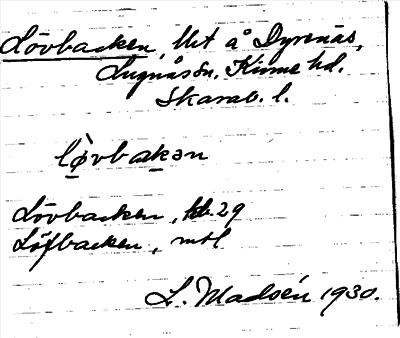 Lövbacken, lht å Dyrenäs,
Lugnås sn. Kinne hd.
Skarab. l.
lø̀vbakən
Lövbacken, kb. 29
Löfbacken, mtl
L. Madsén 1930.